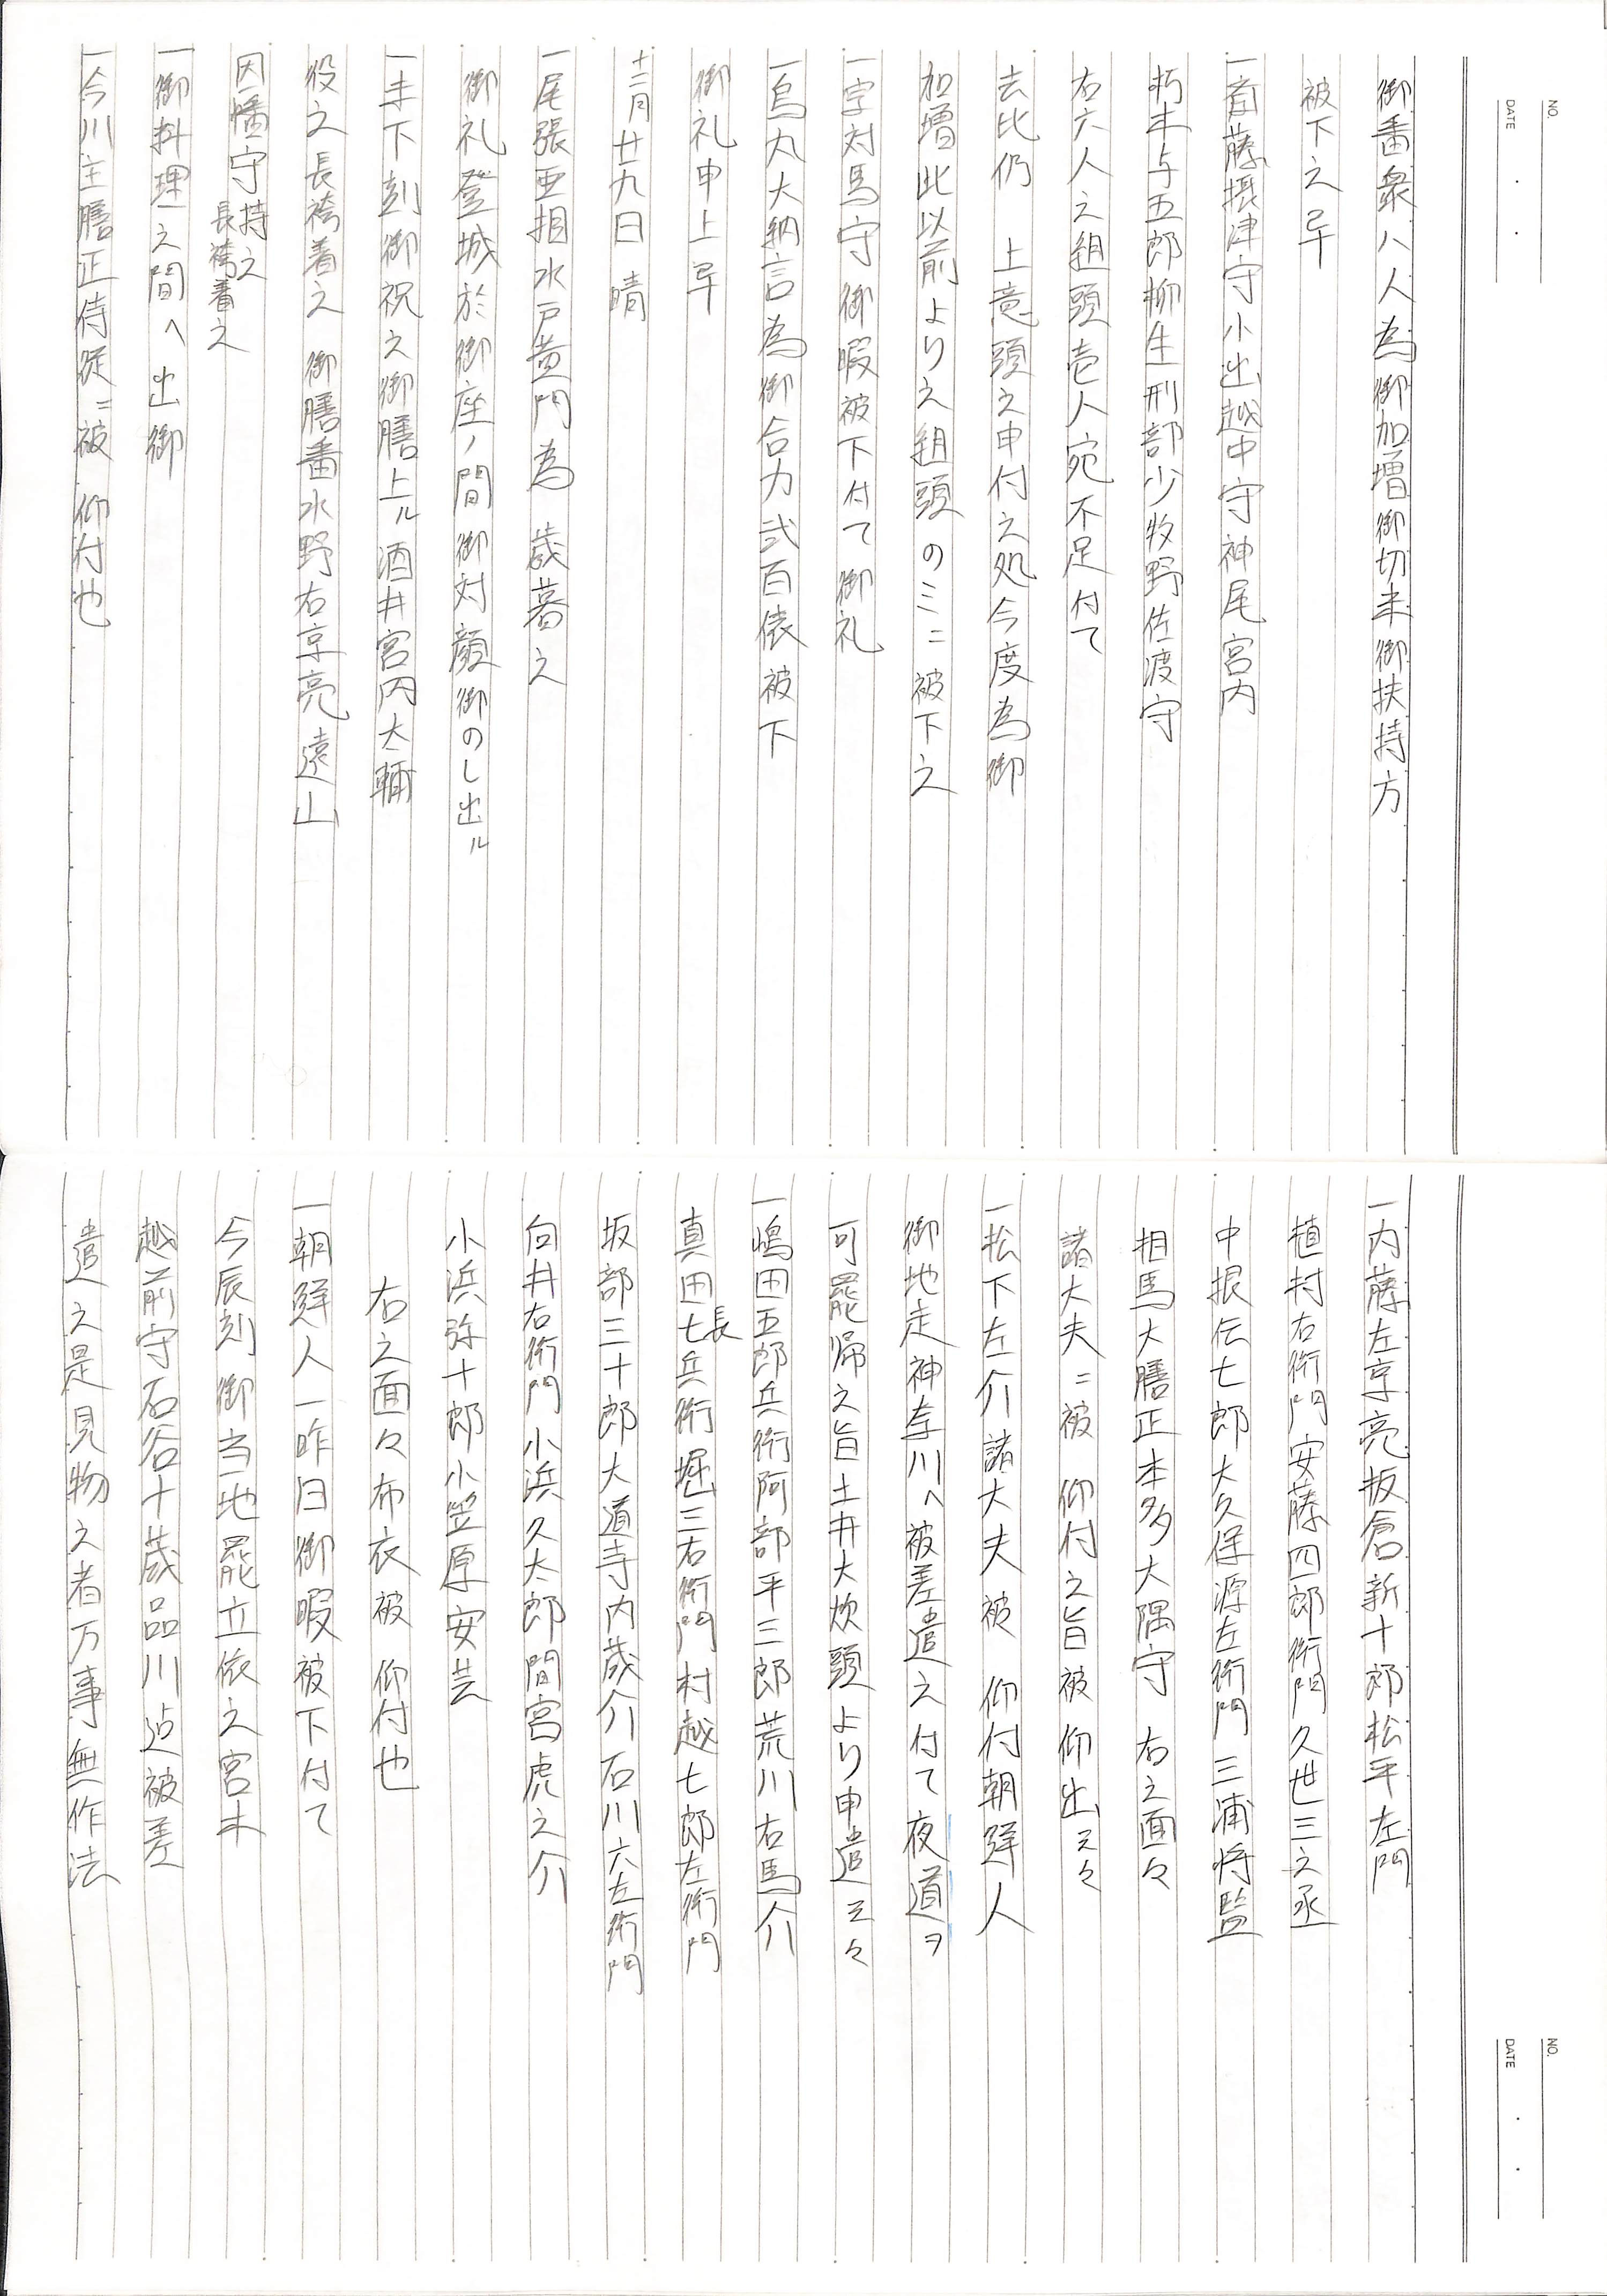 NO.
DATE ・ ・
御番衆八人為御加増御切米御扶持方
被下之畢
一斎藤摂津守小出越中守神尾宮内
朽木与五郎柳生刑部少牧野佐渡守
右六人之組頭壱人宛不足付て
去比仍　上意頭之申付之処今度為御
加増此以前より之組頭のミニ被下之
一宗対馬守御暇被下付て御礼
一烏丸大納言為御合力弐百俵被下
御礼申上畢
十二月廿九日　晴
一尾張亜相水戸黄門為　歳暮之
御礼登城於御座ノ間御対顔御のし出ル
一未下刻御祝之御膳上ル酒井宮内大輔
役之長袴着之　御膳番水野右京亮遠山
因幡守持之
長袴着之
一御料理之間へ出御
一今川主膳正侍従ニ被　仰付也
NO.
DATE ・ ・
一内藤左京亮板倉新十郎松平左門
植村右衛門安藤四郎衛門久世三之丞
中根伝七郎大久保源左衛門三浦将監
相馬大膳正本多大隅守　右之面々
諸大夫ニ被　仰付之旨被仰出云々
一松下左介諸大夫被　仰付朝鮮人
御地走神奈川へ被差遣之付て夜道ヲ
可罷帰之旨土井大炊頭より申遣云々
一嶋田五郎兵衛阿部平三郎荒川右馬介
真田七長兵衛堀三右衛門村越七郎左衛門
坂部三十郎大道寺内蔵介石川六左衛門
向井右衛門小浜久太郎間宮虎之介
小浜弥十郎小笠原安芸
右之面々布衣被　仰付也
一朝鮮人一昨日御暇被下付て
今辰刻御当地罷立依之宮木
越前守石谷十蔵品川迠被差
遣之是見物之者万事無作法